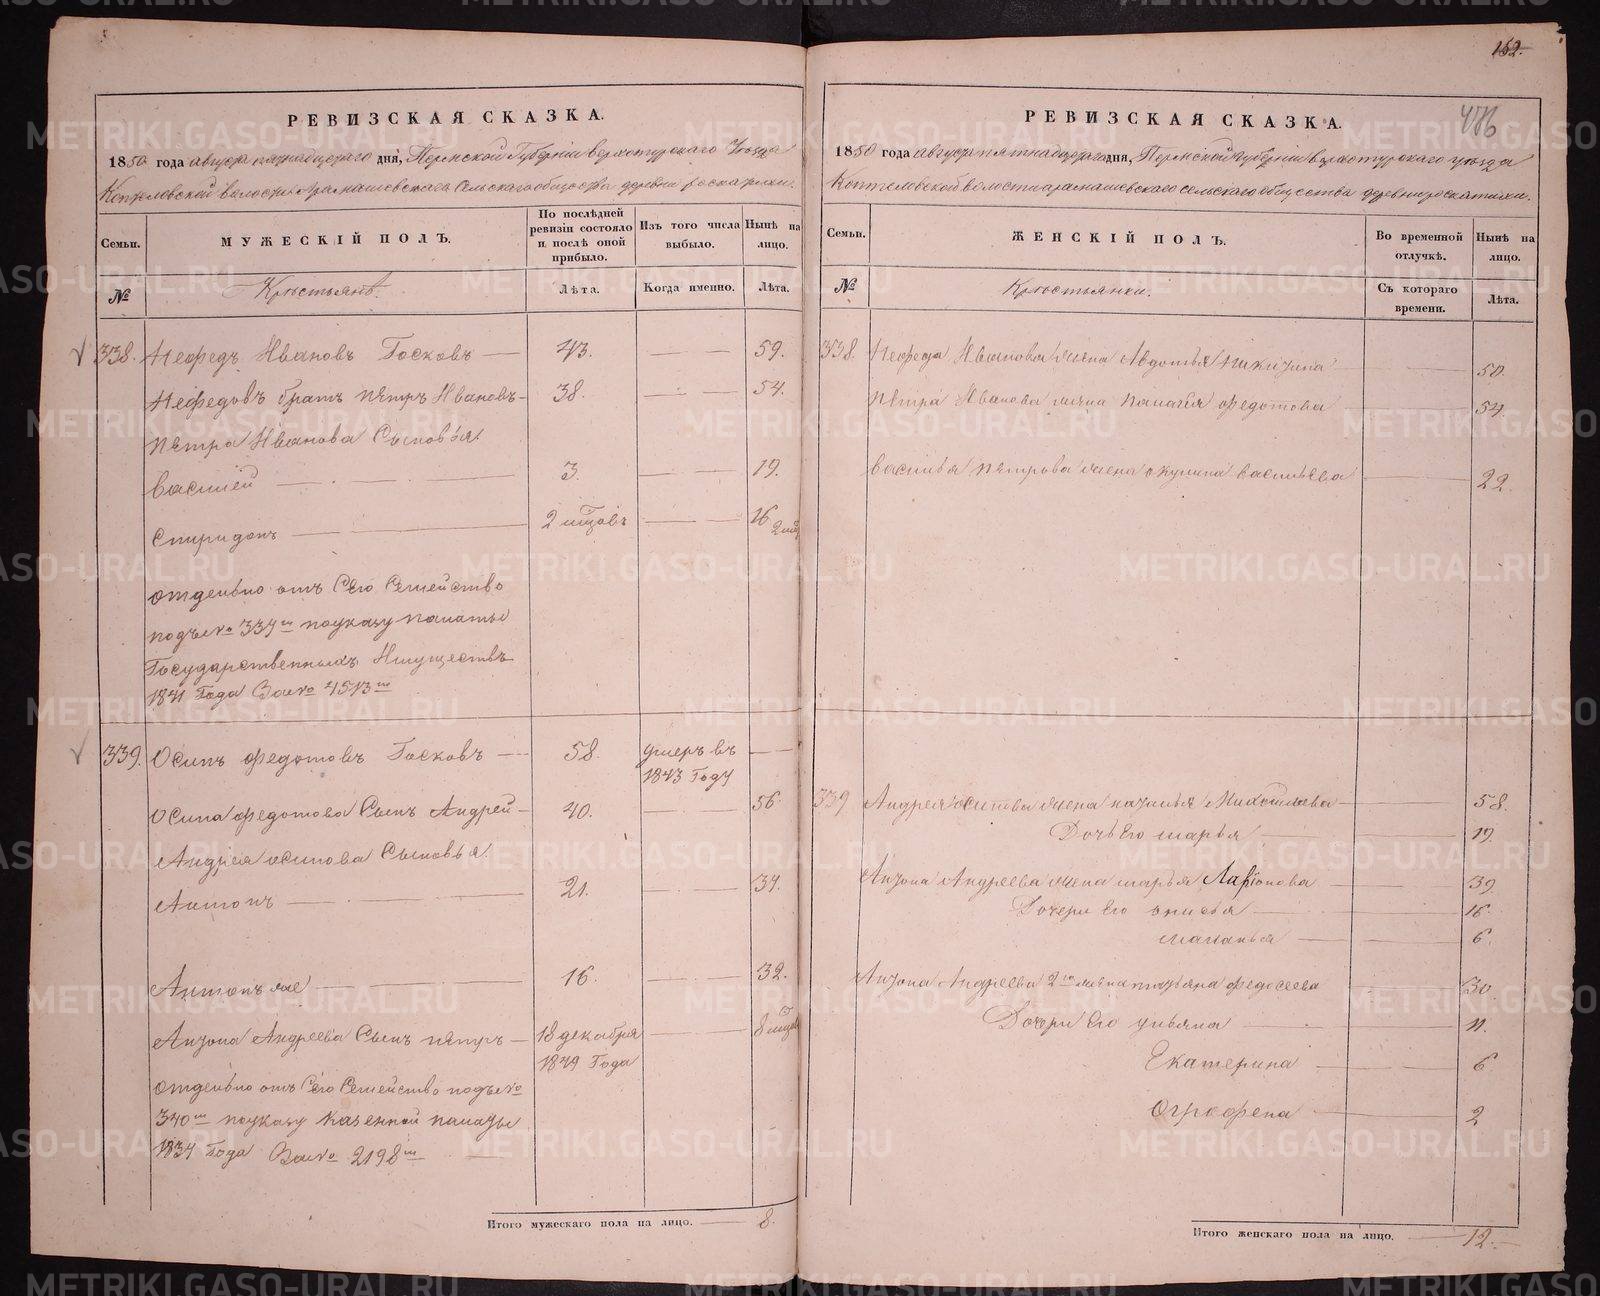 152.
476
РЕВИЗСКАЯ СКАЗКА.
1850 года августа пятнадцатаго дня, Пермской Губерніи верхотурскаго Уезда
Коптеловской волости Арамашевскаго Сельскаго общества деревни роскатихи.
Семьи.
МУЖЕСКІЙ ПОЛЪ.
По послѣдней ревизіи состояло и послѣ оной прибыло.
Изъ того числа выбыло.
Нынѣ на лицо.
№
Крестьянъ.
Лѣта.
Когда именно.
Лѣта.
338. Нефедъ Ивановъ Госковъ — 43. — 59.
Нефедовъ братъ петръ Ивановъ — 38. — 54.
петра Иванова Сыновья
василей — 3. — 19.
спиридонъ — 2 мцовъ — 16 2 мцо
отдельно отъ Сего Семейство
подъ № 337м по указу палаты
Государственныхъ Имуществъ
1841 Года За № 4513м
339. Осипъ федотовъ Госковъ — 58. умеръ въ 1843 Году —
Осипа федотова Сынъ Андрей — 40. — 56.
Андрея осипова Сыновья
Антонъ — 21. — 37.
Антонъ же — 16. — 32.
Антона Андреева Сынъ петръ — 18 декабря 1849 Года — 8 мцов
отдельно отъ Сего Семейство подъ №
340м по указу казенной палаты
1834 Года За № 2198м
Итого мужескаго пола на лицо. — 8.
РЕВИЗСКАЯ СКАЗКА.
1850 года августа пятнадцатаго дня, Пермской губерніи верхотурскаго уезда
Коптеловской волости арамашевскаго сельскаго общества деревни роскатихи.
Семьи.
ЖЕНСКІЙ ПОЛЪ.
Во временной отлучкѣ.
Нынѣ на лицо.
№
Крестьянки.
Съ котораго времени.
Лѣта.
338. Нефеда Иванова жена Авдотья никитина — 50.
петра Иванова жена палагея федотова — 54.
василья петрова жена окулина васильева — 22.
339 Андрея осипова жена наталья Михайлова — 58.
Дочь Его марья — 19.
Антона Андреева жена марья Ларіонова — 39.
Дочери Его анисья — 16.
маланья — 6.
Антона Андреева 2м жена татьяна федосеева — 30.
Дочери Его ульяна — 11.
Екатерина — 6
Огрофена — 2
Итого женскаго пола на лицо. — 12 —